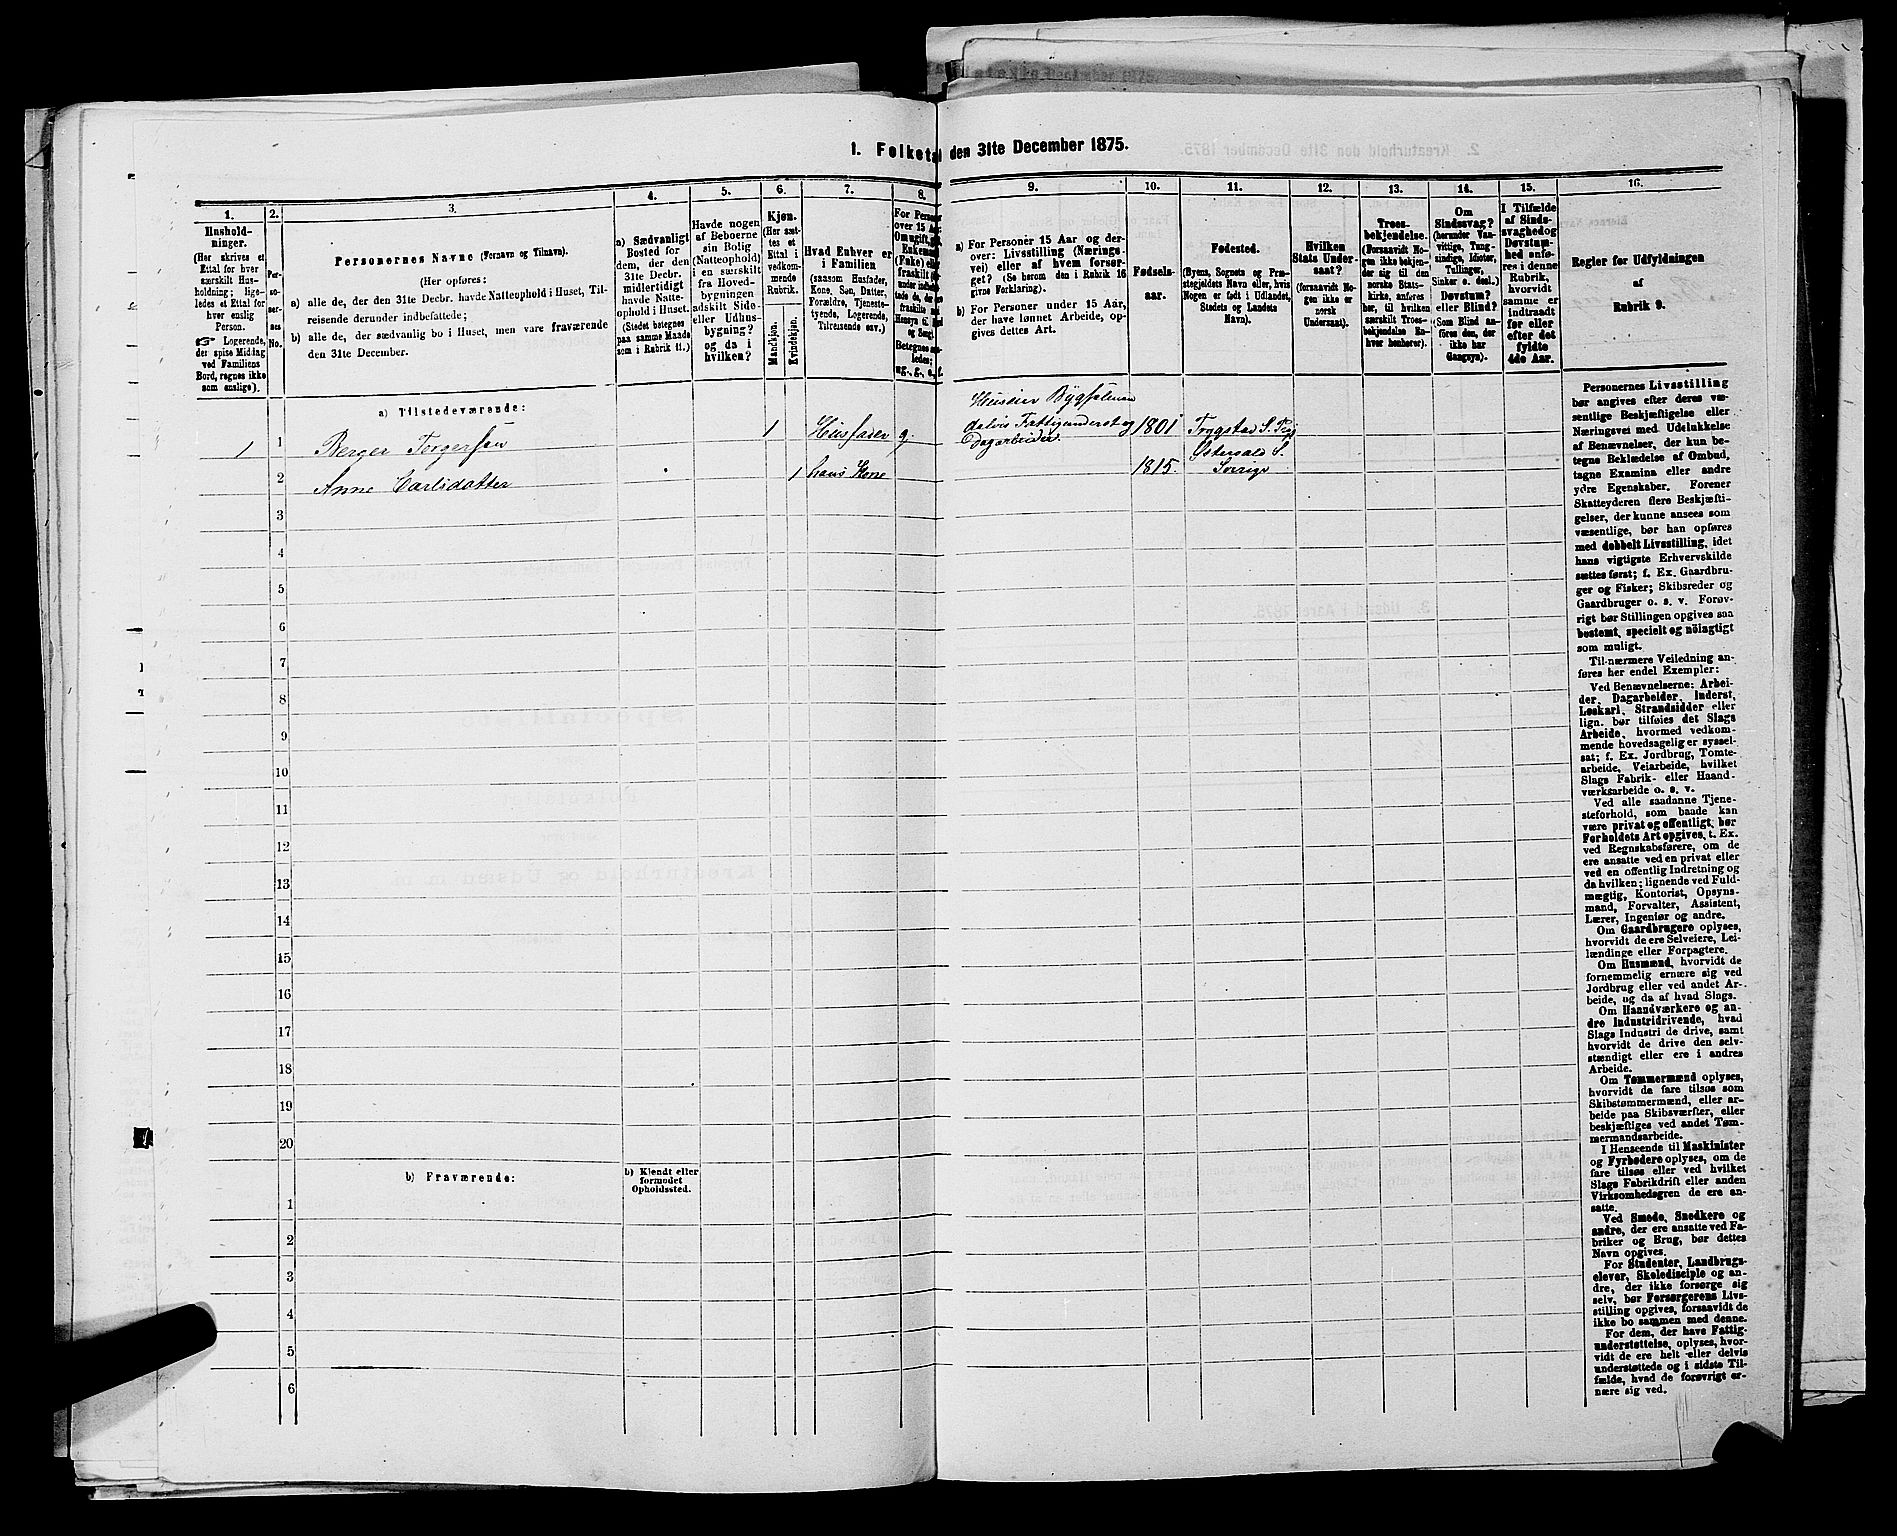 1. Folketal den 31te December 1875.
1.
2.
3.
4.
5.
6.
7.
8.
9.
10.
11.
12.
13.
14.
15.
16.
Hushold-
ninger.
(Her skrives et
Ettal for hver
særskilt Hus-
holdning; lige-
ledes et Ettal for
hver enslig
Person.
☞ Logerende,
der spise Middag
ved Familiens
Bord, regnes ikke
som enslige).
Per-
so-
ner-
nes
No.
Personernes Navne (Fornavn og Tilnavn).
(Her opføres:
a) alle de, der den 31te Decbr. havde Natteophold i Huset, Til-
reisende derunder indbefattede;
b) alle de, der sædvanlig bo i Huset, men vare fraværende
den 31te December.
a) Sædvanligt
Bosted for
dem, der den
31te Decbr.
midlertidigt
havde Natte-
ophold i Huset.
(Stedet betegnes
paa samme Maade
som i Rubrik 11.)
Havde nogen
af Beboerne
sin Bolig
(Natteophold)
i en særskilt
fra Hoved-
bygningen
adskilt Side-
eller Udhus-
bygning?
og da i
hvilken?
Kjøn.
(Her sæt-
tes et
Ettal i
vedkom-
mende
Rubrik.
Mandkjøn.
Kvindekjøn.
Hvad Enhver er
i Familien
(saasom Husfader,
Kone, Søn, Datter,
Forældre, Tjeneste-
tyende, Logerende,
Tilreisende osv.)
a) For Personer 15 Aar og der-
over: Livsstilling (Nærings-
vei) eller af hvem forsør-
get? (Se herom den i Rubrik 16
givne Forklaring).
b) For Personer under 15 Aar,
der have lønnet Arbeide, op-
gives dettes Art.
Fødsels-
aar.
Fødested.
(Byens, Sognets og Præ-
stegjeldets Navn eller, hvis
Nogen er født i Udlandet,
Stedets og Landets
Navn).
Hvilken
Stats Under-
saat?
(forsaavidt No-
gen ikke er
norsk
Undersaat).
Troes-
bekjendelse.
(Forsaavidt No-
gen ikke bekjen-
der sig til den
norske Stats-
kirke, anføres
her, til hvilken
særskilt Troes-
bekjendelse En-
hver henhører).
Om
Sindssvag?
(herunder Van-
vittige, Tung-
sindige, Idioter,
Tullinger,
Sinker o. desl.)
Døvstum?
eller Blind?
(Som Blind an-
føres den, der
ikke har
Gangsyn).
I Tilfælde
af Sinds-
svaghed og
Døvstum-
hed anfø-
res i denne
Rubrik,
hvorvidt
samme er
indtraadt
før eller
efter det
fyldte
4de Aar.
Regler for Udfyldningen
af
Rubrik 9.
a) Tilstedeværende:
1 1 Berger Torgersen 1 Husfader g.
delvis Fattigunderst og Dagarbeider 1801
2 Anne Carlsdatter 1 hans Kone 1815
3
4
5
6
7
8
9
10
11
12
13
14
15
16
17
18
19
20
b) Fraværende:
b) Kjendt eller
formodet
Opholdssted.
1
2
3
4
5
6
Personernes Livsstilling
bør angives efter deres væ-
sentlige Beskjæftigelse eller
Næringsvei med Udelukkelse
af Benævnelser, der kun be-
tegne Beklædelse af Ombud,
tagne Examina eller andre
ydre Egenskaber. Forener
Skatteyderen flere Beskjæfti-
gelser, der kunne ansees som
væsentlige, bør han opføres
med dobbelt Livsstilling, idet
hans vigtigste Erhvervskilde
sættes først; f. Ex. Gaardbru-
ger og Fisker; Skibsreder og
Gaardbruger o. s. v. Forøv-
rigt bør Stillingen opgives saa
bestemt, specielt og nöiagtigt
som muligt.
Til nærmere Veiledning an-
føres her endel Exempler:
Ved Benævnelserne: Arbei-
der, Dagarbeider, Inderst,
Løskarl, Strandsidder eller
lign. bør tilføies det Slags
Arbeide, hvormed vedkom-
mende hovedsagelig er syssel-
sat; f. Ex. Jordbrug, Tomte-
arbeide, Veiarbeide, hvilket
Slags Fabrik- eller Haand-
værksarbeide o. s. v.
Ved alle saadanne Tjene-
steforhold, som baade kan
være privat og offentligt, bør
Forholdets Art opgives, t. Ex.
ved Regnskabsførere, om de
ere ansatte ved en privat eller
ved en offentlig Indretning og
da hvilken; lignende ved Fuld-
mægtig, Kontorist, Opsyns-
mand, Forvalter, Assistent,
Lærer, Ingeniør og andre.
Om Gaardbrugere oplyses,
hvorvidt de ere Selveiere, Lei-
lændinge eller Forpagtere.
Om Husmænd, hvorvidt de
fornemmelig ernære sig ved
Jordbrug eller ved andet Ar-
beide, og da af hvad Slags.
Om Haandværkere og an-
dre Industridrivende, hvad
Slags Industri de drive, samt
hvorvidt de drive den selv-
stændigt eller ere i andres
Arbeide.
Om Tømmermænd oplyses,
hvorvidt de fare tilsøs som
Skibstømmermænd, eller ar-
beide paa Skibsværfter, eller
beskjæftiges ved andet Tøm-
mermandsarbeide.
I Henseende til Maskinister
og Fyrbødere oplyses, om de
fare tilsøs eller ved hvilket
Slags Fabrikdrift eller anden
Virksomhedsgren de ere an-
satte.
Ved Smede, Snedkere og
andre, der ere ansatte ved Fa-
briker og Brug, bør dettes
Navn opgives.
For Studenter, Landbrugs-
elever, Skoledisciple og an-
dre, der ikke forsørge sig
selv, bør Forsørgerens Livs-
stilling opgives, forsaavidt de
ikke bo sammen med denne.
For dem, der have Fattig-
understøttelse, oplyses, hvor-
vidt de ere helt eller delvis
understøttede og i sidste Til-
fælde, hvad de forøvrigt er-
nære sig ved.